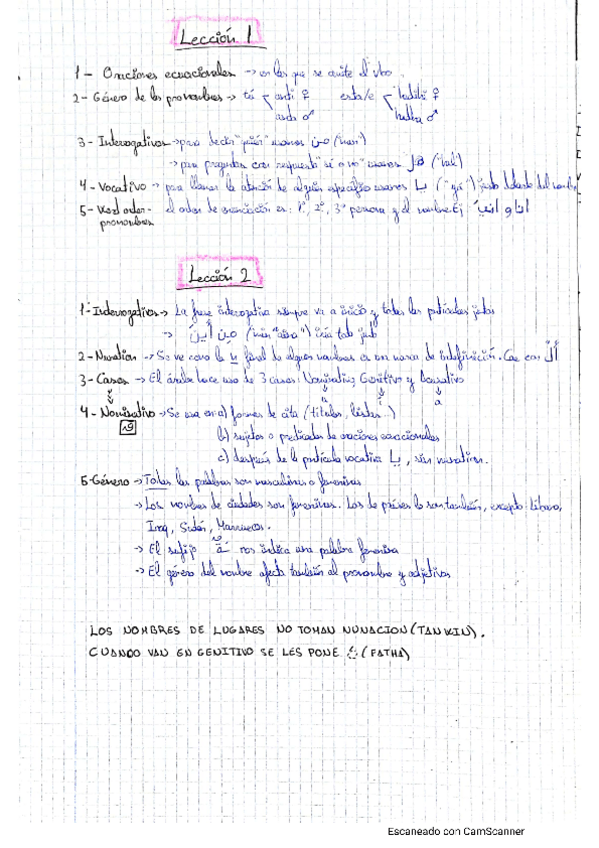 Lección 1
1 - Oraciones ecuacionales → en las que se omite el vbo.
2 - Género de los pronombres → tú anti ♀ este/e hadihi ♀
anta ♂ hadha ♂
3 - Interrogativos → para decir "quién" usamos مِن (man)
→ para preguntas con respuesta "sí o no" usamos هَل (hal)
4 - Vocativo → para llamar la atención de alguien específico usamos يا ("ya") justo delante del nombre
5 - Word order - el orden de enunciación es: 1ª, 2ª, 3ª persona y el nombre. Ej انا و انتَ
pronombres
Lección 2
1 - Interrogativos → La frase interrogativa siempre va a inicio y todas las partículas juntas
→ مِن أَينَ (min "aina") iría todo junto
2 - Nunation → Se ve como la n final de algunos nombres es una marca de indefinición. Cae con أل
3 - Casos → El árabe hace uso de 3 casos: Nominativo, Genitivo y Acusativo
u i a
4 - Nominativo → Se usa en a) formas de cita (títulos, listas...)
b) sujetos o predicados de oraciones ecuacionales
c) después de la partícula vocativa يا, sin nunation.
5 - Género → Todas las palabras son masculinas o femeninas
→ Los nombres de ciudades son femeninos. Los de países lo son también, excepto Líbano,
Iraq, Sudán, Marruecos.
→ El sufijo ة nos indica una palabra femenina
→ El género del nombre afecta también al pronombre y adjetivos
LOS NOMBRES DE LUGARES NO TOMAN NUNACION (TANWIN).
CUANDO VAN EN GENITIVO SE LES PONE (FATHA)
Escaneado con CamScanner